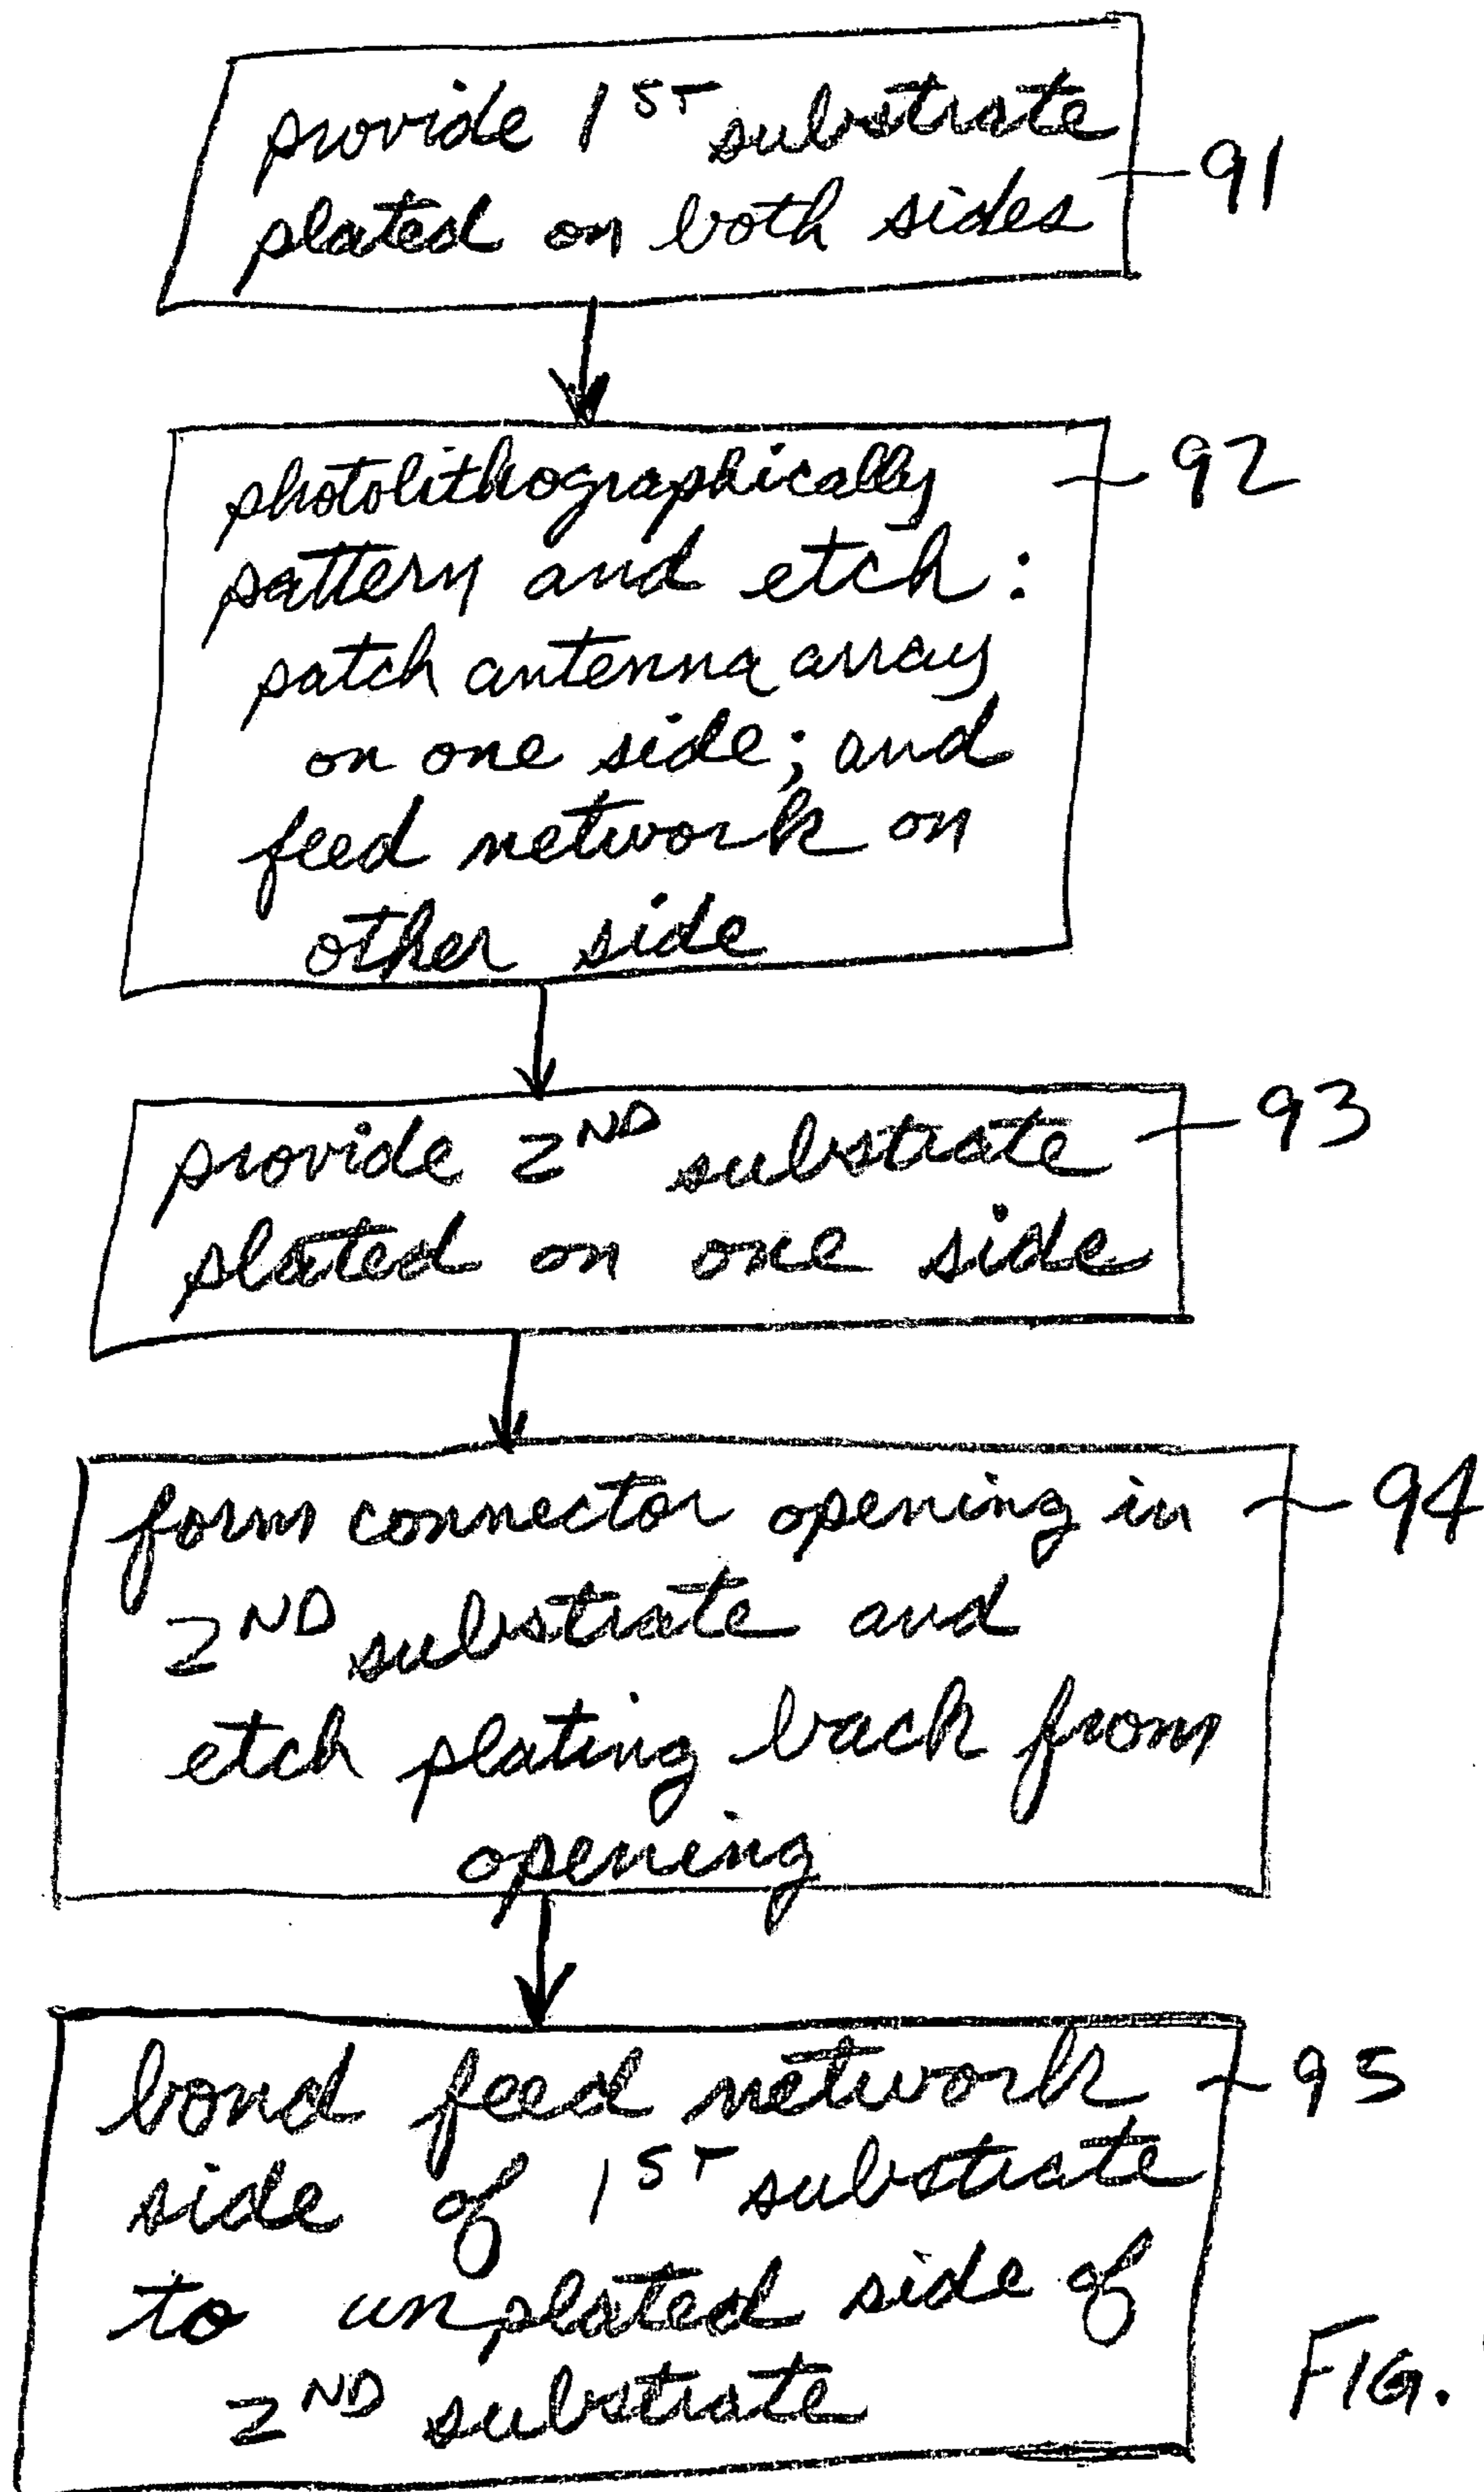 provide 1ST substrate
plated on both sides
91
photolithographically
pattern and etch:
patch antenna array
on one side; and
feed network on
other side
92
provide 2ND substrate
plated on one side
93
form connector opening in
2ND substrate and
etch plating back from
opening
94
bond feed network
side of 1ST substrate
to unplated side of
2ND substrate
95
FIG.